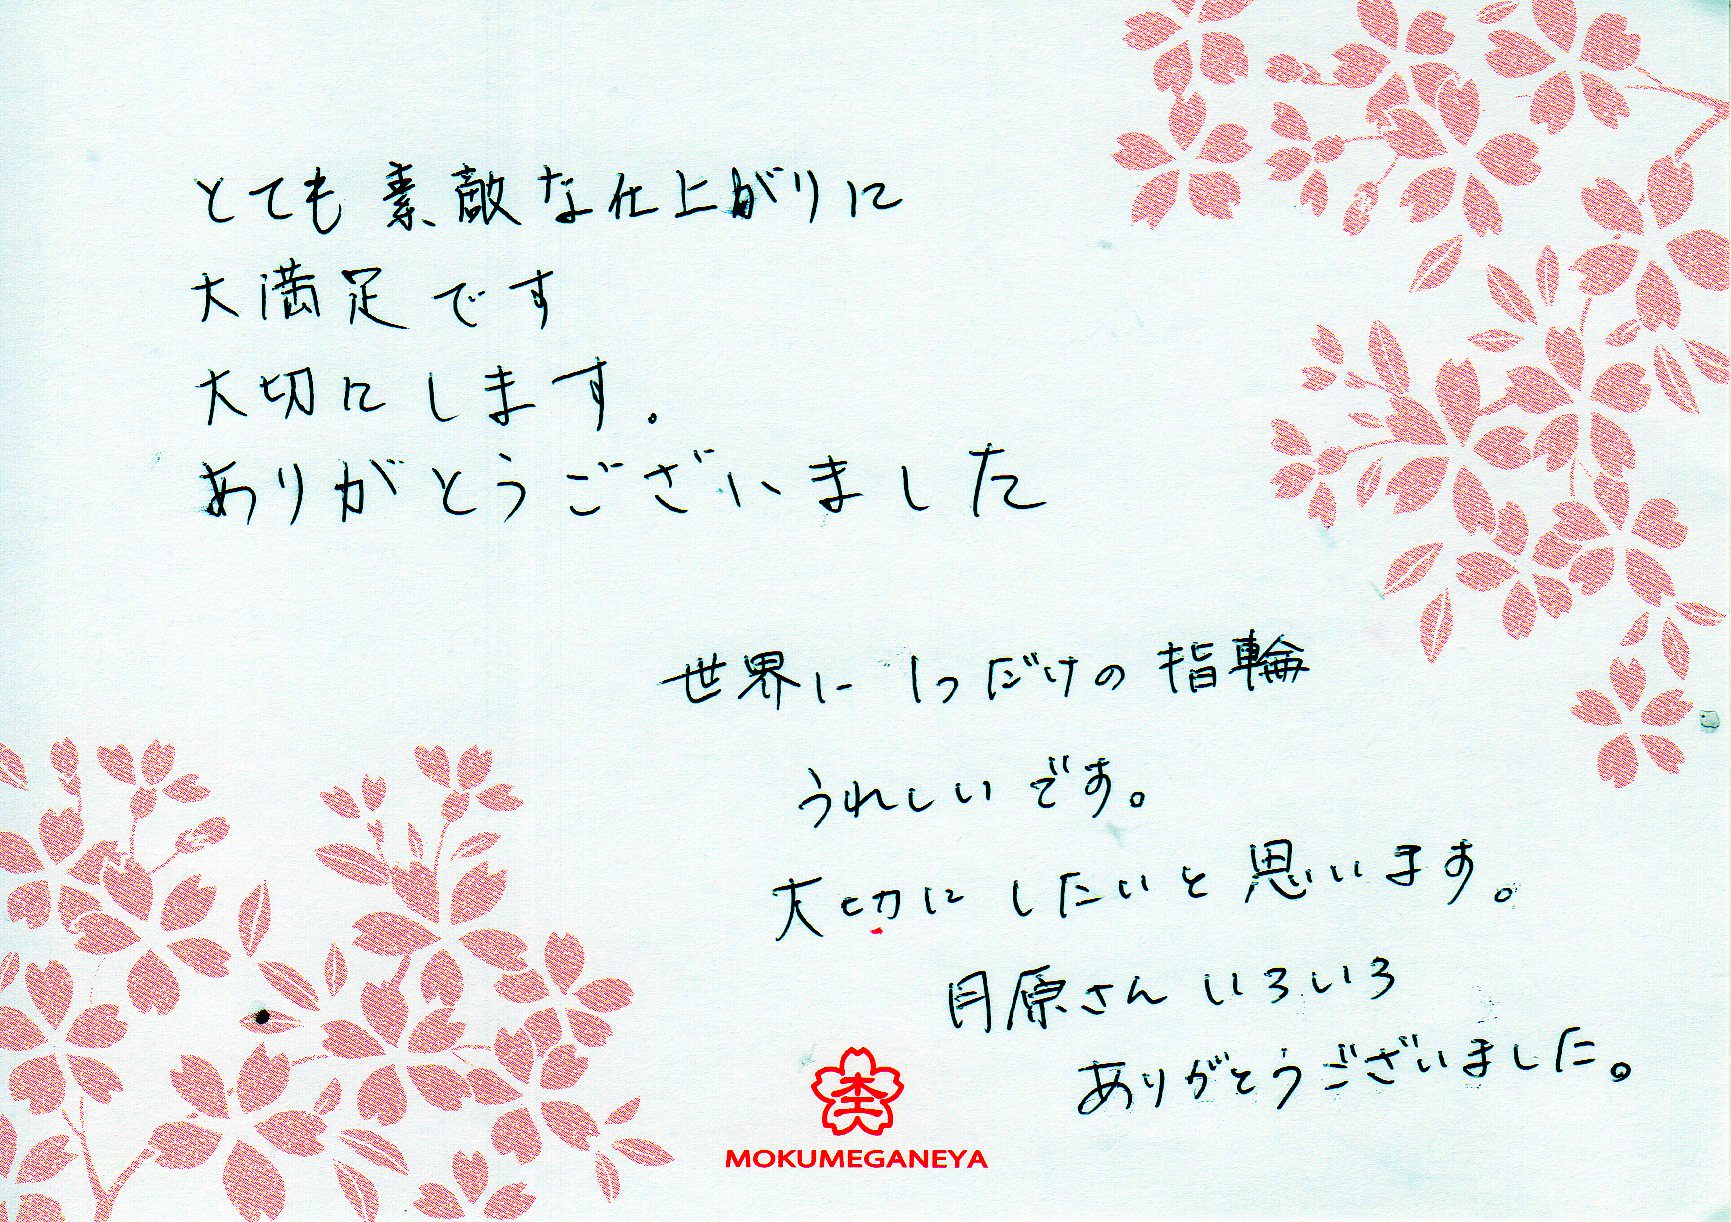 とても素敵な仕上がりに
大満足です
大切にします。
ありがとうございました
世界に1つだけの指輪
うれしいです。
大切にしたいと思います。
月原さんいろいろ
ありがとうございました。
MOKUMEGANEYA